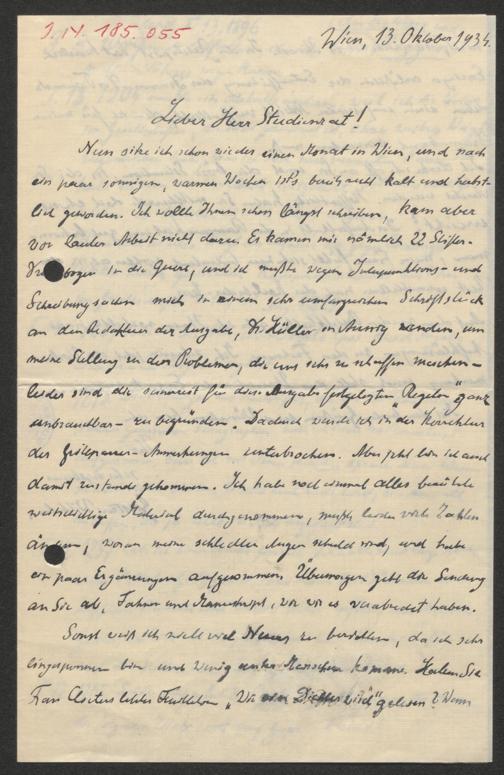 I.N. 185.055
Wien, 13. Oktober 1934.
Lieber Herr Studienrat!
Nun sitze ich schon wieder einen Monat in Wien, und nach
ein paar sonnigen, warmen Wochen ist's bereits recht kalt und herbst-
lich geworden. Ich wollte Ihnen schon längst schreiben, kam aber
vor lauter Arbeit nicht dazu. Es kamen mir nämlich 22 Stifter-
bogen in die Quere, und ich mußte wegen Interpunktions- und
Schreibungsachen mich in einem sehr umfangreichen Schriftstück
an den Redakteur der Ausgabe, Dr. Hüller in Aussig wenden, um
meine Stellung zu den Problemen, die uns sehr zu schaffen machen –
leider sind die seinerzeit für diese Ausgabe festgelegten Regeln ganz
unbrauchbar – zu begründen. Dadurch wurde ich in der Korrektur
der Grillparzer-Anmerkungen unterbrochen. Aber jetzt bin ich auch
damit zustande gekommen. Ich habe noch einmal alles
weitschichtige Material durchgenommen, mußte leider viele Zahlen
ändern, woran meine schlechten Augen schuld sind, und habe
ein paar Ergänzungen aufgenommen. Übermorgen geht die Sendung
an Sie ab, Fahnen und Manuskript, wie wir es verabredet haben.
Sonst weiß ich nicht viel Neues zu berichten, da ich sehr
eingesponnen bin und wenig unter Menschen komme. Haben Sie
Frau letztes Feuilleton „Wie ein Dichter wird" gelesen? Wenn